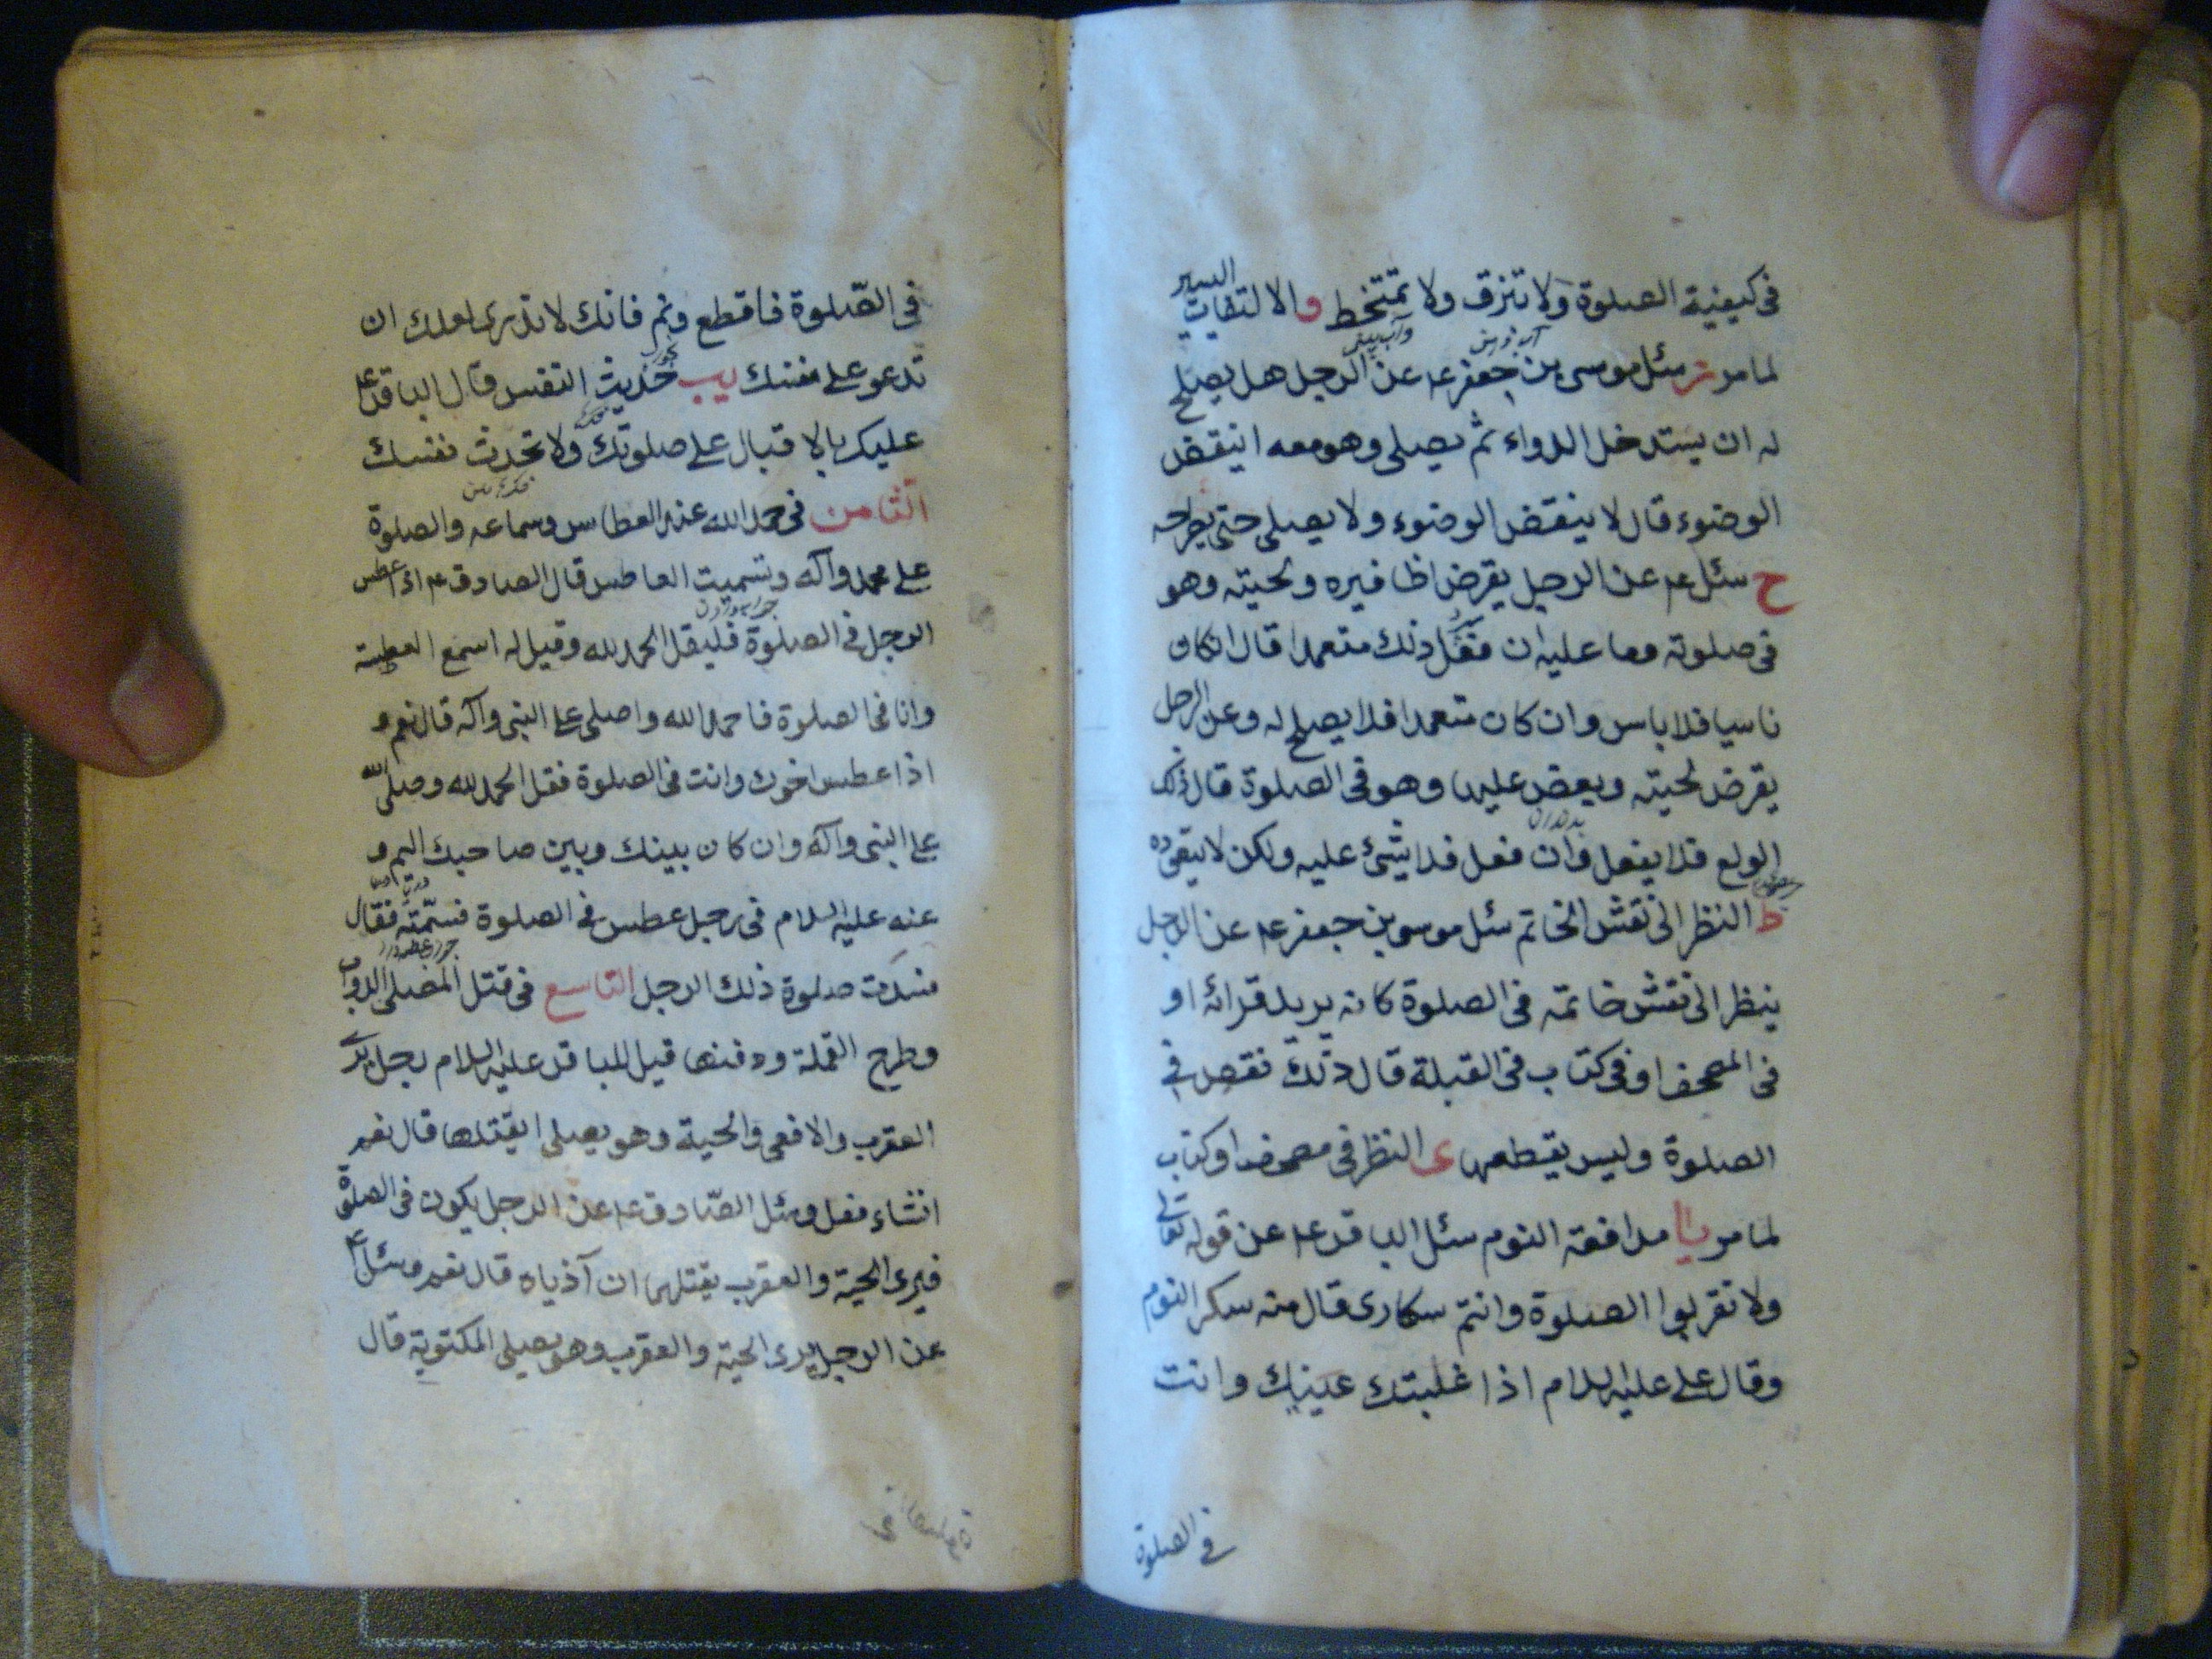 فى كيفية الصلوة ولا تبزق ولا تمتخط و الالتفات اليسير
لما مر ز سئل موسى بن جعفر ع عن الرجل هل يصلح
له ان يستدخل الدواء ثم يصلى وهو معه اينقض
الوضوء قال لا ينقض الوضوء ولا يصلى حتى يطرحه
ح سئل ع عن الرجل يقرض اظافيره و لحيته وهو
فى صلوته وما عليه ان فعل ذلك متعمدا قال ان كان
ناسيا فلا باس وان كان متعمدا فلا يصلح له وعن الرجل
يقرض لحيته ويعض عليها وهو فى الصلوة قال ذلك
الولع فلا يفعل وان فعل فلا شئ عليه ولكن لا يتعوده
ط النظر الى نقش الخاتم سئل موسى بن جعفر ع عن الرجل
ينظر الى نقش خاتمه فى الصلوة كانه يريد قرائه او
فى المصحف او فى كتاب فى القبلة قال ذلك نقص فى
الصلوة وليس يقطعها ى النظر فى مصحف او كتاب
لما مر يا مدافعة النوم سئل الباقر ع عن قوله تعالى
ولا تقربوا الصلوة وانتم سكارى قال منه سكر النوم
وقال على عليه السلام اذا غلبتك عينك وانت
فى الصلوة
فى الصّلوة فاقطع ونم فانك لا تدرى لعلك ان
تدعو على نفسك يب حديث النفس قال الباقر ع
عليك بالاقبال على صلوتك ولا تحدث نفسك
الثامن فى حمد الله عند العطاس وسماعه والصلوة
على محمد وآله وتسميت العاطس قال الصادق ع اذا عطس
الرجل فى الصلوة فليقل الحمد لله وقيل له اسمع العطسة
وانا فى الصلوة فاحمد الله واصلى على النبى وآله قال نعم و
اذا عطس اخوك وانت فى الصلوة فقل الحمد لله وصلى الله
على النبى وآله وان كان بينك وبين صاحبك اليم و
عنه عليه السلام فى رجل عطس فى الصلوة فسمّته فقال
فسدت صلوة ذلك الرجل التاسع فى قتل المصلى الدواب
وطرح القملة ودفنها قيل للباقر عليه السلام رجل يرى
العقرب والافعى والحية وهو يصلى ايقتلها قال نعم
انشاء فعل وسئل الصّادق ع عن الرجل يكون فى الصلوة
فيرى الحية والعقرب يقتلهما ان آذياه قال نعم وسئل ع
عن الرجل يرى الحية والعقرب وهو يصلى المكتوبة قال